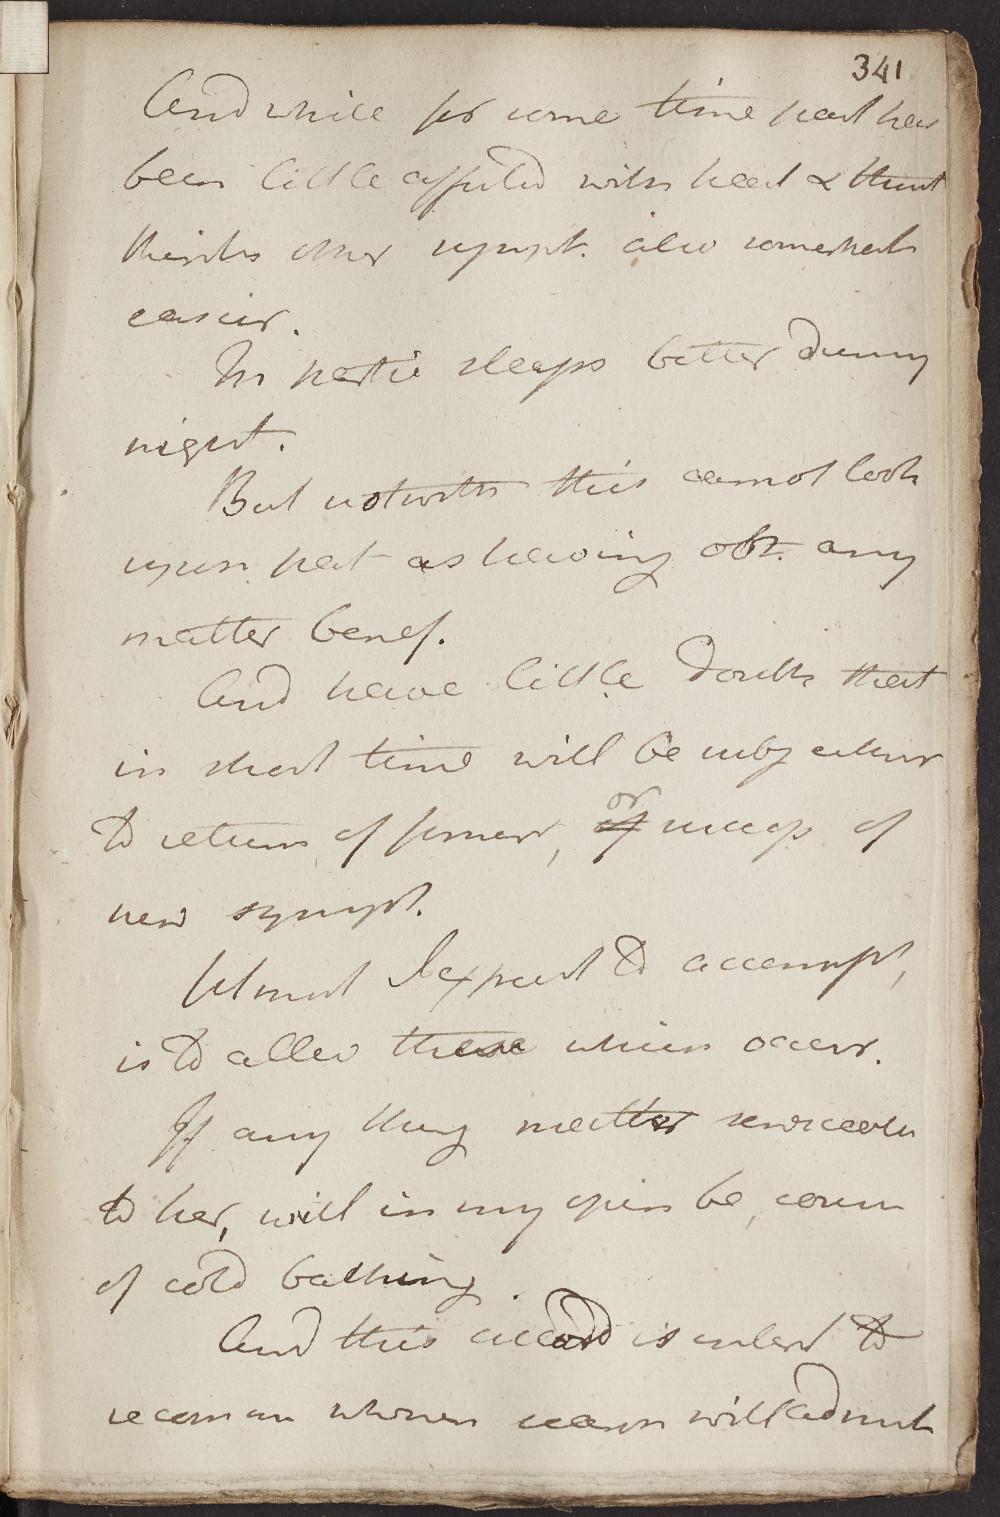 341
And while for some time past has
been little affected with head &
thinks other sympt. also somewhat
easier.
In partic sleeps better during
night.
But notwith this cannot look
upon pat as having obt. any
matter benef.
And have little doubt that
in short time will be subj either
to return of former, or of
new sympt.
Utmost I expect to accompl,
is to allev these which occur.
If any thing matter serviceable
to her, will in my opin be, cours
of cold bathing.
And this accord is intend to
recomm whenever season will admit